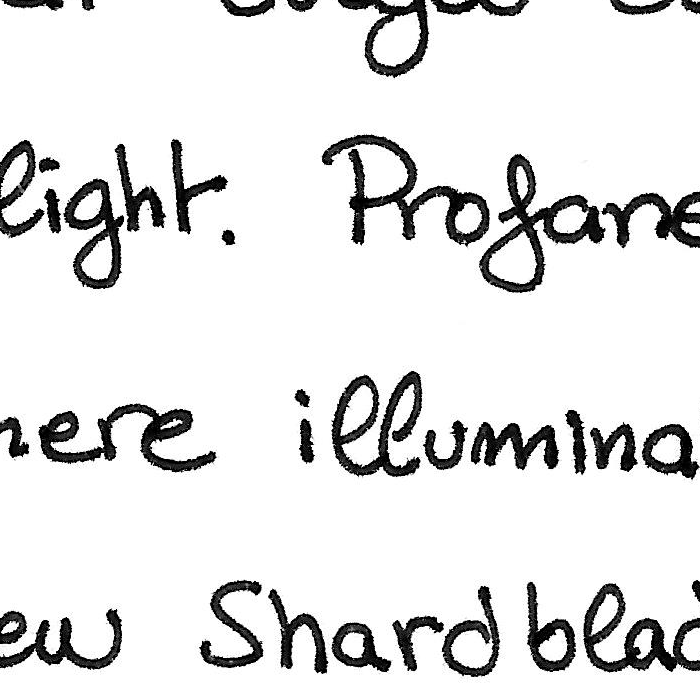 light. Profane
here illumina
ew Shardblad